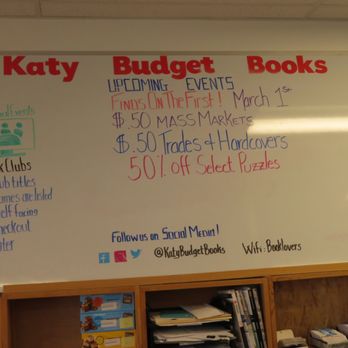 Katy Budget Books
UPCOMING EVENTS
Finds On The First! March 1st
$.50 MASS MARKETS
$.50 Trades & Hardcovers
50% off Select Puzzles
Clubs
titles
are listed
facing
Follow us on Social Media!
@KatyBudgetBooks
Wifi: Booklovers